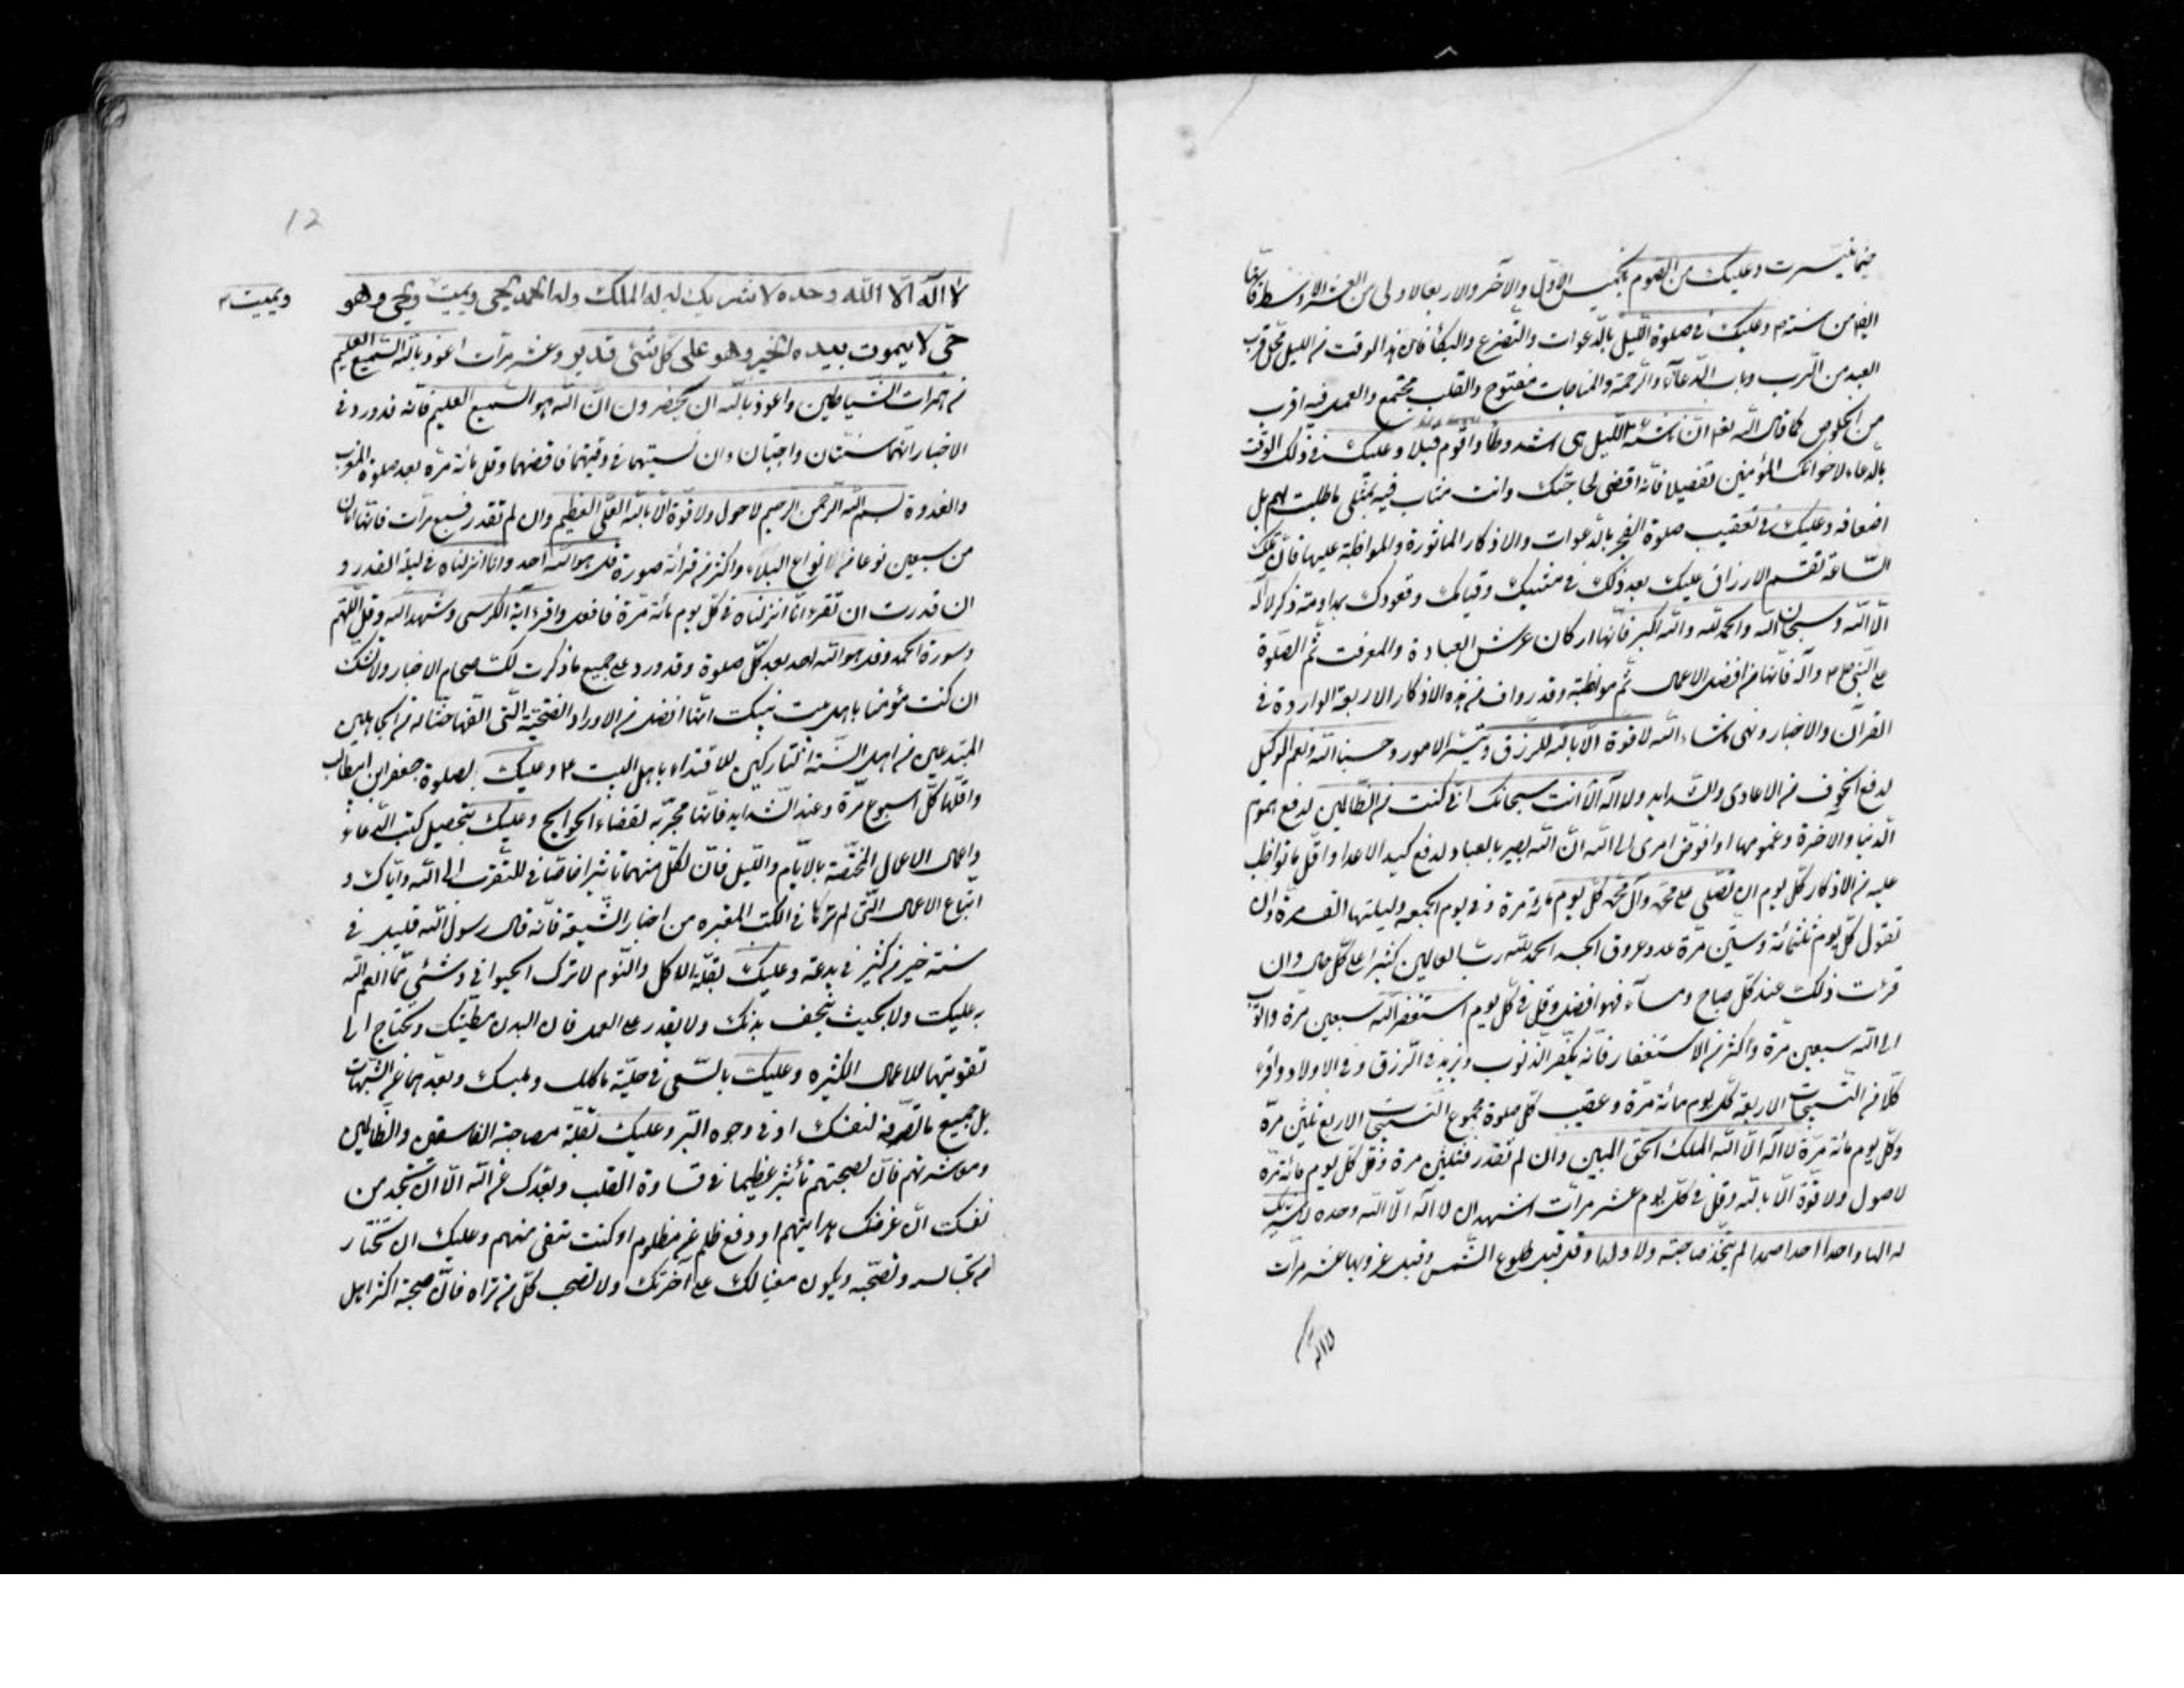 فيما تيسرت وعليك من الصوم بخميس الاول والآخر والاربعا الاولى من العشر الاوسط فانها
ايضا من سنته وعليك في صلوة الليل بالدعوات والتضرع والبكاء فان هذا الوقت من الليل محل قرب
العبد من الرب وباب الدعاء والرحمة والمناجات مفتوح والقلب مجتمع والعمل فيه اقرب
من الخلوص كما قال الله تعه ان ناشئة الليل هى اشد وطأ واقوم قيلا وعليك في ذلك الوقت
بالدعاء لاخوانك المؤمنين تفصيلا فانه اقضى لحاجتك وانت مثاب فيه بمثلى ما طلبت لهم بل
اضعافه وعليك في تعقيب صلوة الفجر بالدعوات والاذكار الماثورة والمواظبة عليها فان تلك
الساعة تقسم الارزاق عليك بعد ذلك في مشيك وقيامك وقعودك بمداومة ذكر لا اله
الا الله وسبحان الله والحمد لله والله اكبر فانها اركان عرش العبادة والمعرفت ثم الصلوة
على النبي ص وآله فانها من افضل الاعمال ثم مواظبة وقد رواف من هذه الاذكار الاربعة الواردة في
القرآن والاخبار وهى ما شاء الله لا قوة الا بالله للرزق وتيسر الامور وحسبنا الله ونعم الوكيل
لدفع الخوف من الاعادى والشدايد ولا اله الا انت سبحانك انى كنت من الظالمين لدفع هموم
الدنيا والاخرة وغمومها او افوض امرى الى الله ان الله بصير بالعباد لدفع كيد الاعدا واقل ما تواظب
عليه من الاذكار كل يوم ان تصلى على محمد وآل محمد كل يوم مائة مرة وفي يوم الجمعه وليلتها الف مرة وان
تقول كل يوم ثلثمائة وستين مرة عدد عروق الجسد الحمد لله رب العالمين كثيرا على كل حال وان
قرئت ذلك عند كل صباح ومساء فهو افضل وقل في كل يوم استغفر الله سبعين مرة واتوب
الى الله سبعين مرة واكثر من الاستغفار فانه يكفر الذنوب ويزيد في الرزق وفي الاولاد واقرء
كلا من التسبيحات الاربعة كل يوم مائة مرة وعقيب كل صلوة مجموع التسبيحات الاربع ثلثين مرة
وكل يوم مائة مرة لا اله الا الله الملك الحق المبين وان لم تقدر فثلثين مرة وقل كل يوم مائة مرة
لا حول ولا قوة الا بالله وقل في كل يوم عشر مرات اشهد ان لا اله الا الله وحده لا شريك
له الها واحدا احدا صمدا لم يتخذ صاحبة ولا ولدا وقل قبل طلوع الشمس وقبل غروبها عشر مرات
لا اله
12
لا اله الا الله وحده لا شريك له له الملك وله الحمد يحيى ويميت ويحيى وهو
ويميت
حى لا يموت بيده الخير وهو على كل شئ قدير وعشر مرات اعوذ بالله السميع العليم
من همزات الشياطين واعوذ بالله ان يحضرون ان الله هو السميع العليم فانه قد ورد في
الاخبار انهما سنتان واجبتان وان نسيتهما في وقتهما فاقضهما وقل مائة مرة بعد صلوة المغرب
والغدوة بسم الله الرحمن الرحيم لا حول ولا قوة الا بالله العلى العظيم وان لم تقدر فسبع مرات فانها امان
من سبعين نوعا من انواع البلاء واكثر من قرائة صورة قل هو الله احد وانا انزلناه في ليلة القدر و
ان قدرت ان تقرء انا انزلناه في كل يوم مائة مرة فافعل واقرء اية الكرسى وشهد الله وقل اللهم
وسورة الحمد وقل هو الله احد بعد كل صلوة وقد ورد على جميع ما ذكرت لك صحاح الاخبار ولا شك
ان كنت مؤمنا باهل بيت نبيك انها افضل من الاوراد الفتحية التى الفها حثالة من الجاهلين
المبتدعين من اهل السنة التاركين للاقتداء باهل البيت ع وعليك بصلوة جعفر ابن ابيطالب
واقلها كل اسبوع مرة وعند الشدايد فانها مجربة لقضاء الحوايج وعليك بتحصيل كتب الدعاء
واعمال الاعمال المختصة بالايام والليل فان لكل منهما تاثيرا خاصا في للتقرب الى الله واياك و
اتباع الاعمال التى لم ترها في الكتب المعتبره من اخبار الشيعة فانه قال رسول الله قليل في
سنة خير من كثير في بدعة وعليك بقلة الاكل والنوم لا ترك الحيوانى وشئى مما انعم الله
به عليك ولا بحيث ينحف بدنك ولا يقدر على العمل فان البدن مطيتك وتحتاج الى
تقويتها للاعمال الكثيره وعليك بالسعى في حلية ماكلك وملبسك وبعدهما عن الشبهات
بل جميع ما تصرفه لنفسك او في وجوه البر وعليك بقلة مصاحبة الفاسقين والظالمين
ومعاشرتهم فان لصحبتهم تأثير عظيما في قساوة القلب وبعدك عن الله الا ان تجد من
نفسك ان غرضك هدايتهم او دفع ظلم عن مظلوم او كنت تتقى منهم وعليك ان تختار
من تجالسه وتصحبه ويكون معينا لك على آخرتك ولا تصحب كل من تراه فان صحبة اكثر اهل